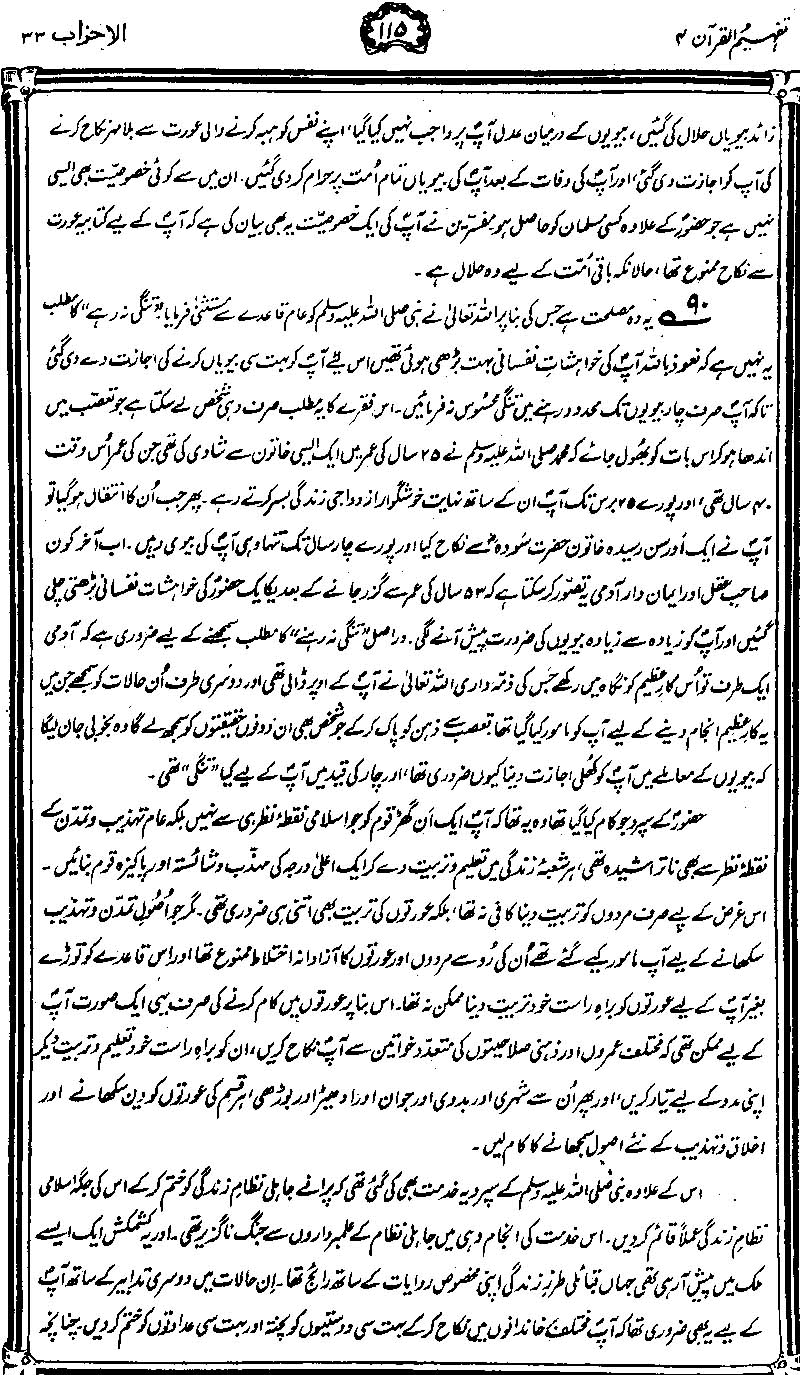 تفہیم القرآن ۴
۱۱۵
الاحزاب ۳۳
زائد بیویاں حلال کی گئیں، بیویوں کے درمیان عدل آپؐ پر واجب نہیں کیا گیا، اپنے نفس کو ہبہ کرنے والی عورت سے بلا مہر نکاح کرنے
کی آپؐ کو اجازت دی گئی، اور آپؐ کی وفات کے بعد آپؐ کی بیویاں تمام اُمت پر حرام کر دی گئیں۔ ان میں سے کوئی خصوصیّت بھی ایسی
نہیں ہے جو حضورؐ کے علاوہ کسی مسلمان کو حاصل ہو۔ مفسّرین نے آپؐ کی ایک خصوصیّت یہ بھی بیان کی ہے کہ آپؐ کے لیے کتابیہ عورت
سے نکاح ممنوع تھا، حالانکہ باقی اُمّت کے لیے وہ حلال ہے۔
۹۰ یہ وہ مصلحت ہے جس کی بنا پر اللہ تعالیٰ نے نبی صلی اللہ علیہ وسلم کو عام قاعدے سے مستثنیٰ فرمایا۔ ”تنگی نہ رہے“ کا مطلب
یہ نہیں ہے کہ نعوذ باللہ آپؐ کی خواہشاتِ نفسانی بہت بڑھی ہوئی تھیں اس لیے آپؐ کو بہت سی بیویاں کرنے کی اجازت دے دی گئی
تاکہ آپؐ صرف چار بیویوں تک محدود رہنے میں تنگی محسوس نہ فرمائیں۔ اس فقرے کا یہ مطلب صرف وہی شخص لے سکتا ہے جو تعصّب میں
اندھا ہو کر اس بات کو بھول جائے کہ محمد صلی اللہ علیہ وسلم نے ۲۵ سال کی عمر میں ایک ایسی خاتون سے شادی کی تھی جن کی عمر اُس وقت
۴۰ سال تھی، اور پورے ۲۵ برس تک آپؐ ان کے ساتھ نہایت خوشگوار ازدواجی زندگی بسر کرتے رہے۔ پھر جب اُن کا انتقال ہو گیا تو
آپؐ نے ایک اَور سن رسیدہ خاتون حضرت سَودہؓ سے نکاح کیا اور پورے چار سال تک تنہا وہی آپؐ کی بیوی رہیں۔ اب آخر کون
صاحبِ عقل اور ایمان دار آدمی یہ تصوّر کر سکتا ہے کہ ۵۳ سال کی عمر سے گزر جانے کے بعد یکایک حضورؐ کی خواہشات نفسانی بڑھتی چلی
گئیں اور آپؐ کو زیادہ سے زیادہ بیویوں کی ضرورت پیش آنے لگی۔ دراصل ”تنگی نہ رہنے“ کا مطلب سمجھنے کے لیے ضروری ہے کہ آدمی
ایک طرف تو اُس کارِ عظیم کو نگاہ میں رکھے جس کی ذمّہ داری اللہ تعالیٰ نے آپؐ کے اوپر ڈالی تھی اور دوسری طرف اُن حالات کو سمجھے جن میں
یہ کارِ عظیم انجام دینے کے لیے آپؐ کو مامور کیا گیا تھا۔ تعصب سے ذہن کو پاک کر کے جو شخص بھی ان دونوں حقیقتوں کو سمجھ لے گا وہ بخوبی جان لیگا
کہ بیویوں کے معاملے میں آپؐ کو کھلی اجازت دینا کیوں ضروری تھا، اور چار کی قید میں آپؐ کے لیے کیا ”تنگی“ تھی۔
حضورؐ کے سپرد جو کام کیا گیا تھا وہ یہ تھا کہ آپؐ ایک اَن گھڑ قوم کو جو اسلامی نقطۂ نظر ہی سے نہیں بلکہ عام تہذیب و تمدّن کے
نقطۂ نظر سے بھی ناتراشیدہ تھی، ہر شعبۂ زندگی میں تعلیم و تربیت دے کر ایک اعلیٰ درجہ کی مہذّب و شائستہ اور پاکیزہ قوم بنائیں۔
اس غرض کے لیے صرف مردوں کو تربیت دینا کافی نہ تھا، بلکہ عورتوں کی تربیت بھی اتنی ہی ضروری تھی۔ مگر جو اُصولِ تمدّن و تہذیب
سکھانے کے لیے آپؐ مامور کیے گئے تھے اُن کی رُو سے مردوں اور عورتوں کا آزادانہ اختلاط ممنوع تھا اور اس قاعدے کو توڑے
بغیر آپؐ کے لیے عورتوں کو براہِ راست خود تربیت دینا ممکن نہ تھا۔ اس بنا پر عورتوں میں کام کرنے کی صرف یہی ایک صورت آپؐ
کے لیے ممکن تھی کہ مختلف عمروں اور ذہنی صلاحیتوں کی متعدّد خواتین سے آپؐ نکاح کریں، ان کو براہِ راست خود تعلیم و تربیت دیکر
اپنی مدد کے لیے تیار کریں، اور پھر اُن سے شہری اور بدوی اور جوان اور ادھیڑ اور بوڑھی، ہر قسم کی عورتوں کو دین سکھانے اور
اخلاق و تہذیب کے نئے اصول سمجھانے کا کام لیں۔
اس کے علاوہ نبی صلی اللہ علیہ وسلم کے سپرد یہ خدمت بھی کی گئی تھی کہ پرانے جاہلی نظامِ زندگی کو ختم کر کے اس کی جگہ اسلامی
نظامِ زندگی عملاً قائم کر دیں۔ اس خدمت کی انجام دہی میں جاہلی نظام کے علمبرداروں سے جنگ ناگزیر تھی۔ اور یہ کشمکش ایک ایسے
ملک میں پیش آ رہی تھی جہاں قبائلی طرزِ زندگی اپنی مخصوص روایات کے ساتھ رائج تھا۔ اِن حالات میں دوسری تدابیر کے ساتھ آپؐ
کے لیے یہ بھی ضروری تھا کہ آپؐ مختلف خاندانوں میں نکاح کر کے بہت سی دوستیوں کو پختہ اور بہت سی عداوتوں کو ختم کر دیں۔ چنانچہ